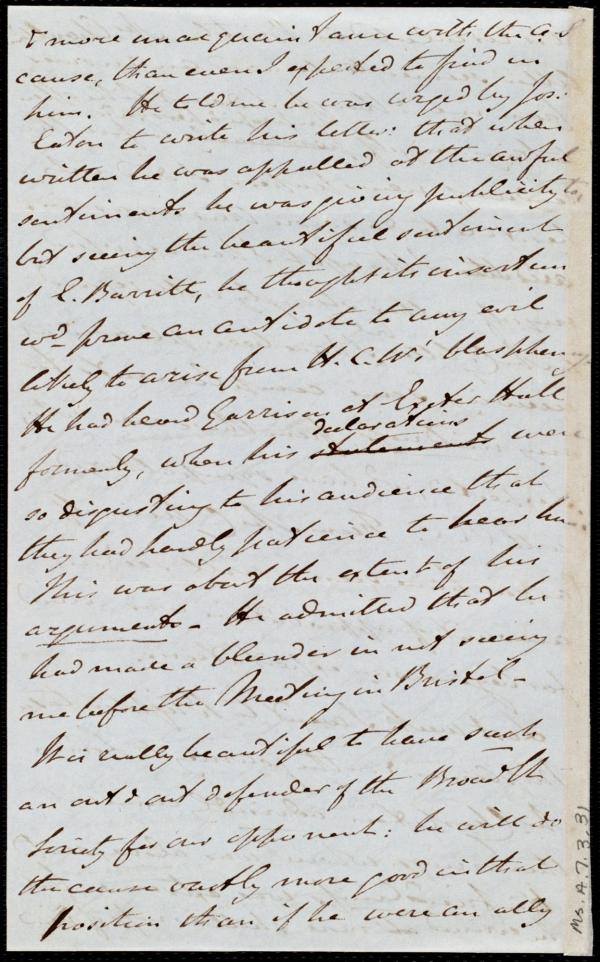 & more unacquaintance with the A.S
cause, than even I expected to find in
him. He told me he was urged by Jos:
Eaton to write his letter: that when
written he was appalled at the awful
sentiments he was giving publicity to,
but seeing the beautiful sentiment
of E. Burritt, he thought its insertion
wd. prove an antidote to any evil
likely to arise from H.C.W's blasphemy.
He had heard Garrison at Exeter Hall
declarations
formerly, when his statements were
so disgusting to his audience that
they had hardly patience to hear him
This was about the extent of his
arguments - He admitted that he
had made a blunder in not seeing
me before the Meeting in Bristol -
It is really beautiful to have such
an out & out defender of the Broad St
Society for our opponent: he will do
the cause vastly more good in that
position than if he were an ally
Ms. A. 7. 3. 31